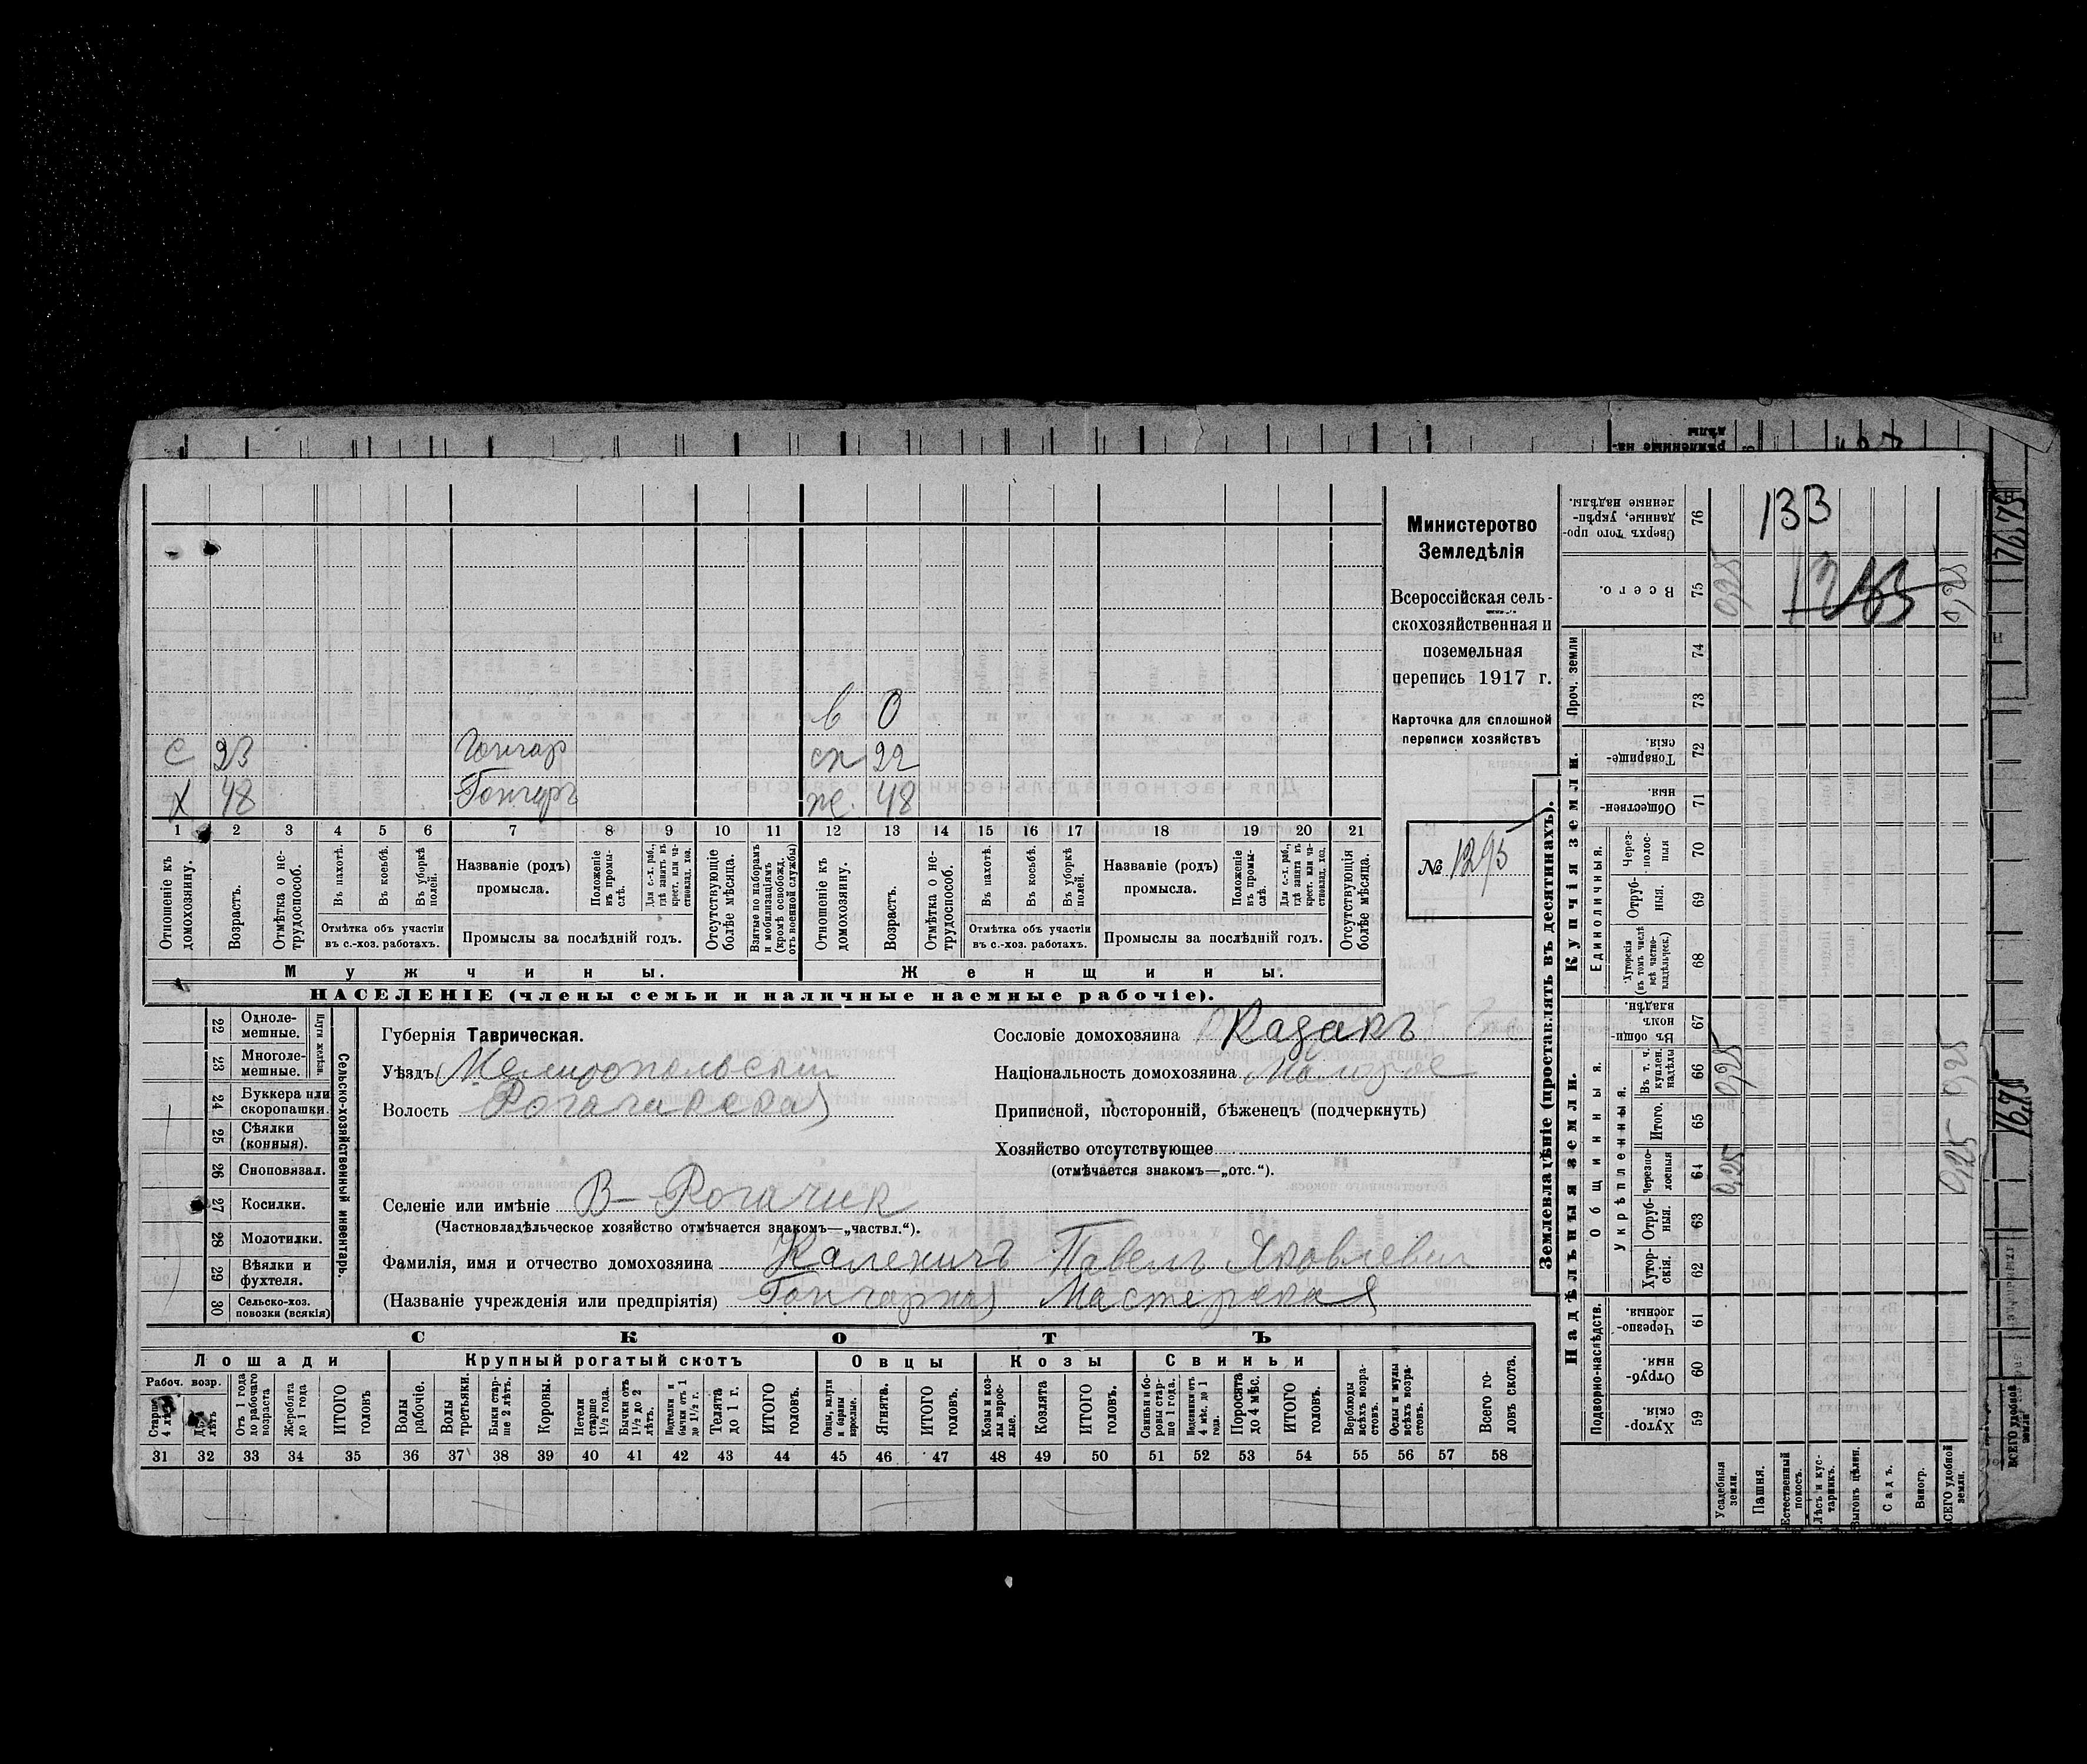 133
1293
Министерство
Земледѣлія
Всероссійская сель-
скохозяйственная и
поземельная
перепись 1917 г.
Карточка для сплошной
переписи хозяйствъ
№ 1295
в 0
с 23 Гончар сн 22
х 48 Гончаръ ж. 48
1 2 3 4 5 6 7 8 9 10 11 12 13 14 15 16 17 18 19 20 21
Отношеніе къ домохозяину.
Возрастъ.
Отмѣтка о не-трудоспособ.
Въ пахотѣ.
Въ косьбѣ.
Въ уборкѣ полей.
Отмѣтка объ участіи
въ с.-хоз. работахъ.
Названіе (родъ)
промысла.
Положеніе въ промы-слѣ.
Для с.-х. раб., гдѣ занятъ въ крест. или ча-стновлад. хоз.
Промыслы за послѣдній годъ.
Отсутствующіе болѣе мѣсяца.
Взятые по наборамъ и мобилизаціямъ (кромѣ освобожд. отъ военной службы)
Отношеніе къ домохозяину.
Возрастъ.
Отмѣтка о не-трудоспособ.
Въ пахотѣ.
Въ косьбѣ.
Въ уборкѣ полей.
Отмѣтка объ участіи
въ с.-хоз. работахъ.
Названіе (родъ)
промысла.
Положеніе въ промы-слѣ.
Для с.-х. раб., гдѣ занята въ крест. или ча-стновлад. хоз.
Промыслы за послѣдній годъ.
Отсутствующія болѣе мѣсяца.
Мужчины.
Женщины.
НАСЕЛЕНІЕ (члены семьи и наличные наемные рабочіе).
22 Одноле-мешные.
23 Многоле-мешные.
Плуги желѣзн.
24 Буккера или скоропашки.
25 Сѣялки (конныя).
26 Сноповязал.
27 Косилки.
28 Молотилки.
29 Вѣялки и фухтеля.
30 Сельско-хоз. повозки (всякія)
Сельско-хозяйственный инвентарь.
Губернія Таврическая.
Уѣздъ Мелитопольскій
Волость Рогачикская
Селеніе или имѣніе В-Рогачик
(Частновладѣльческое хозяйство отмѣчается знакомъ—„частвл.“).
Фамилія, имя и отчество домохозяина Каленичъ Павелъ Яковлевич
(Названіе учрежденія или предпріятія) Гончарная Мастерская
Сословіе домохозяина Казакъ
Національность домохозяина Малорос
Приписной, посторонній, бѣженецъ (подчеркнуть)
Хозяйство отсутствующее
(отмѣчается знакомъ—„отс.“).
СКОТЪ
Лошади
Крупный рогатый скотъ
Овцы
Козы
Свиньи
Рабоч. возр.
Старше 4 лѣтъ
лѣтъ
Отъ 1 года до рабочаго возраста
Жеребята до 1 года
ИТОГО головъ
Волы рабочіе.
Волы третьяки.
Быки стар-ше 2 лѣтъ.
Коровы.
Нетели старше 1½ года.
Бычки отъ 1½ до 2 лѣтъ.
Подтелки и бычки отъ 1 до 1½ г.
Телята до 1 г.
ИТОГО головъ.
Овцы, валухи и бараны взрослые.
Ягнята.
ИТОГО головъ.
Козы и коз-лы взрос-лые.
Козлята
ИТОГО головъ.
Свиньи и бо-ровы стар-ше 1 года.
Подсвинки отъ 4 мѣс. до 1 года.
Поросята до 4 мѣс.
ИТОГО головъ.
Верблюды всѣхъ возра-стовъ.
Ослы и мулы всѣхъ возра-стовъ.
Всего го-ловъ скота.
31 32 33 34 35 36 37 38 39 40 41 42 43 44 45 46 47 48 49 50 51 52 53 54 55 56 57 58
Землевладѣніе (проставлять въ десятинахъ).
Надѣльныя земли.
Купчія земли.
Проч. земли
Подворно-наслѣдств.
Общинныя.
Укрѣпленныя.
Единоличныя.
59 Хутор-скія.
60 Отруб-ныя.
61 Черезпо-лосныя.
62 Хутор-скія.
63 Отруб-ныя.
64 Черезпо-лосныя
65 Итого.
66 Въ т. ч. куплен. надѣлы
67 Въ общин-номъ владѣн.
68 Хуторскія (въ томъ числѣ всѣ частно-владѣльческ.)
69 Отруб-ныя.
70 Через-полос-ныя
71 Обществен-ныя
72 Товарище-скія
73
74
75 Всего.
76 Сверхъ того про-данные, укрѣп-ленные надѣлы.
Усадебныя земли. 0,25 0,25 0,25
Пашня.
Естественный покосъ.
Лѣсъ и кус-тарникъ.
Выгонъ цѣлин.
Садъ.
Виногр.
ВСЕГО удобной земли. 0,25 0,25 0,25
ВСЕГО удобной земли